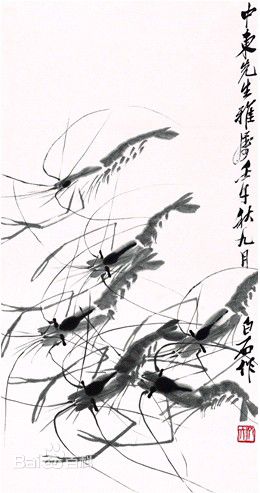 中東先生雅屬壬午秋九月
白石作
Baidu百科